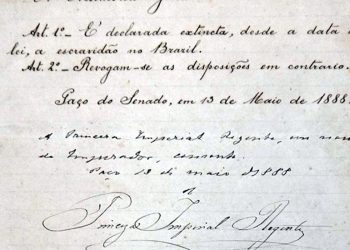 Art. 1º - É declarada extincta, desde a data
lei, a escravidão no Brazil.
Art. 2º - Revogam-se as disposições em contrario.
Paço do Senado, em 13 de Maio de 1888
A Princeza Imperial Regente, em
do Imperador, consente.
Paço 13 de maio de 1888
Imperial Regente